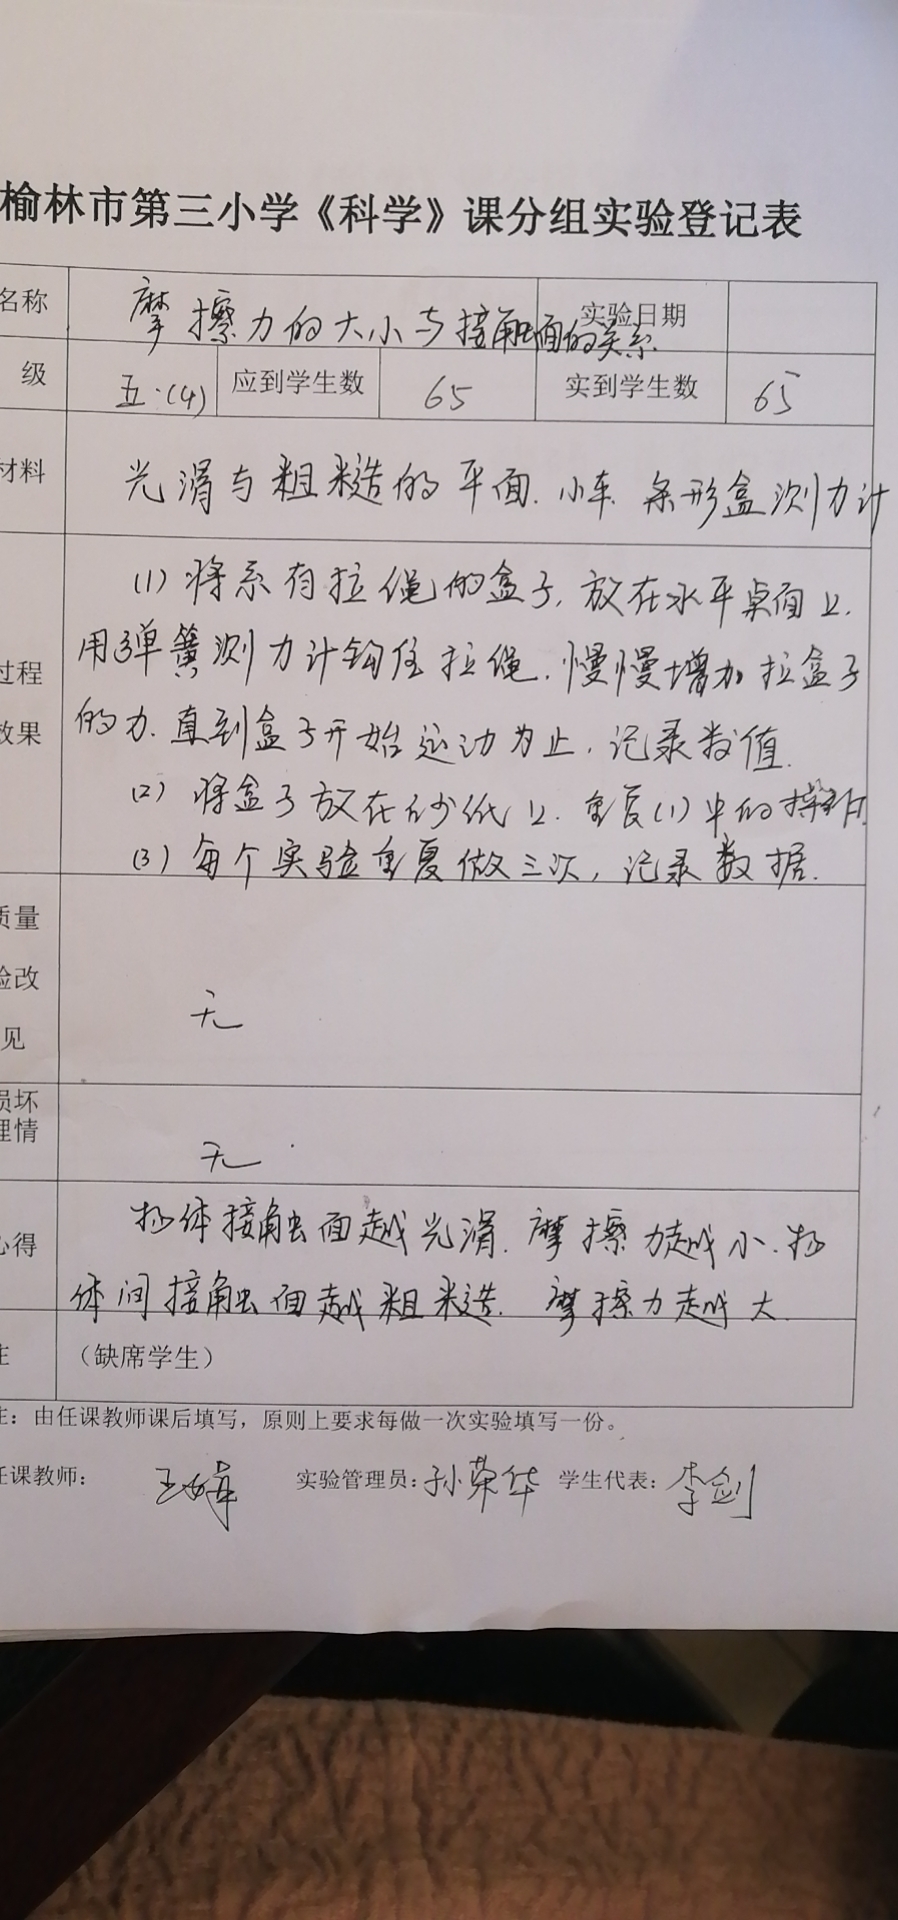 榆林市第三小学《科学》课分组实验登记表
名称 摩擦力的大小与接触面的关系 实验日期
级 五.(4) 应到学生数 65 实到学生数 65
材料 光滑与粗糙的平面.小车.条形盒测力计
(1)将系有拉绳的盒子,放在水平桌面上.
用弹簧测力计钩住拉绳.慢慢增加拉盒子
过程
的力.直到盒子开始运动为止.记录数值.
效果
(2)将盒子放在砂纸上.重复(1)中的操作.
(3)每个实验重复做三次,记录数据.
质量
验改
见
无
损坏
理情
无
物体接触面越光滑.摩擦力越小.物
心得
体间接触面越粗糙.摩擦力越大.
注 (缺席学生)
注:由任课教师课后填写,原则上要求每做一次实验填写一份。
任课教师: 实验管理员:孙荣华 学生代表:李剑